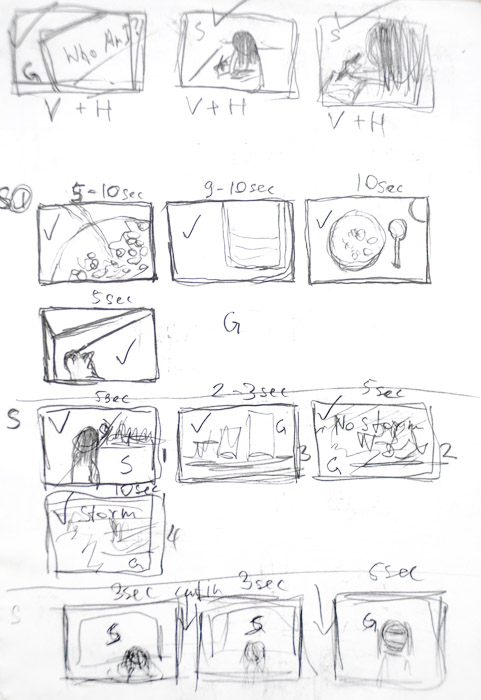 Who Am I?
G
S
S
V + H
V + H
V + H
S①
5-10sec
9-10sec
10sec
5sec
G
S
5sec
2-3sec
5sec
S
1
G
3
No Storm
G
2
10sec
Storm
G
4
3sec
cut in
3sec
5sec
S
S
S
G